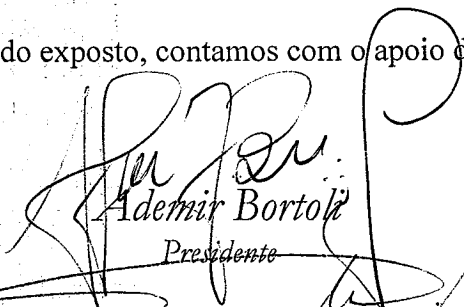 do exposto, contamos com o apoio d
Ademir Bortoli
Presidente